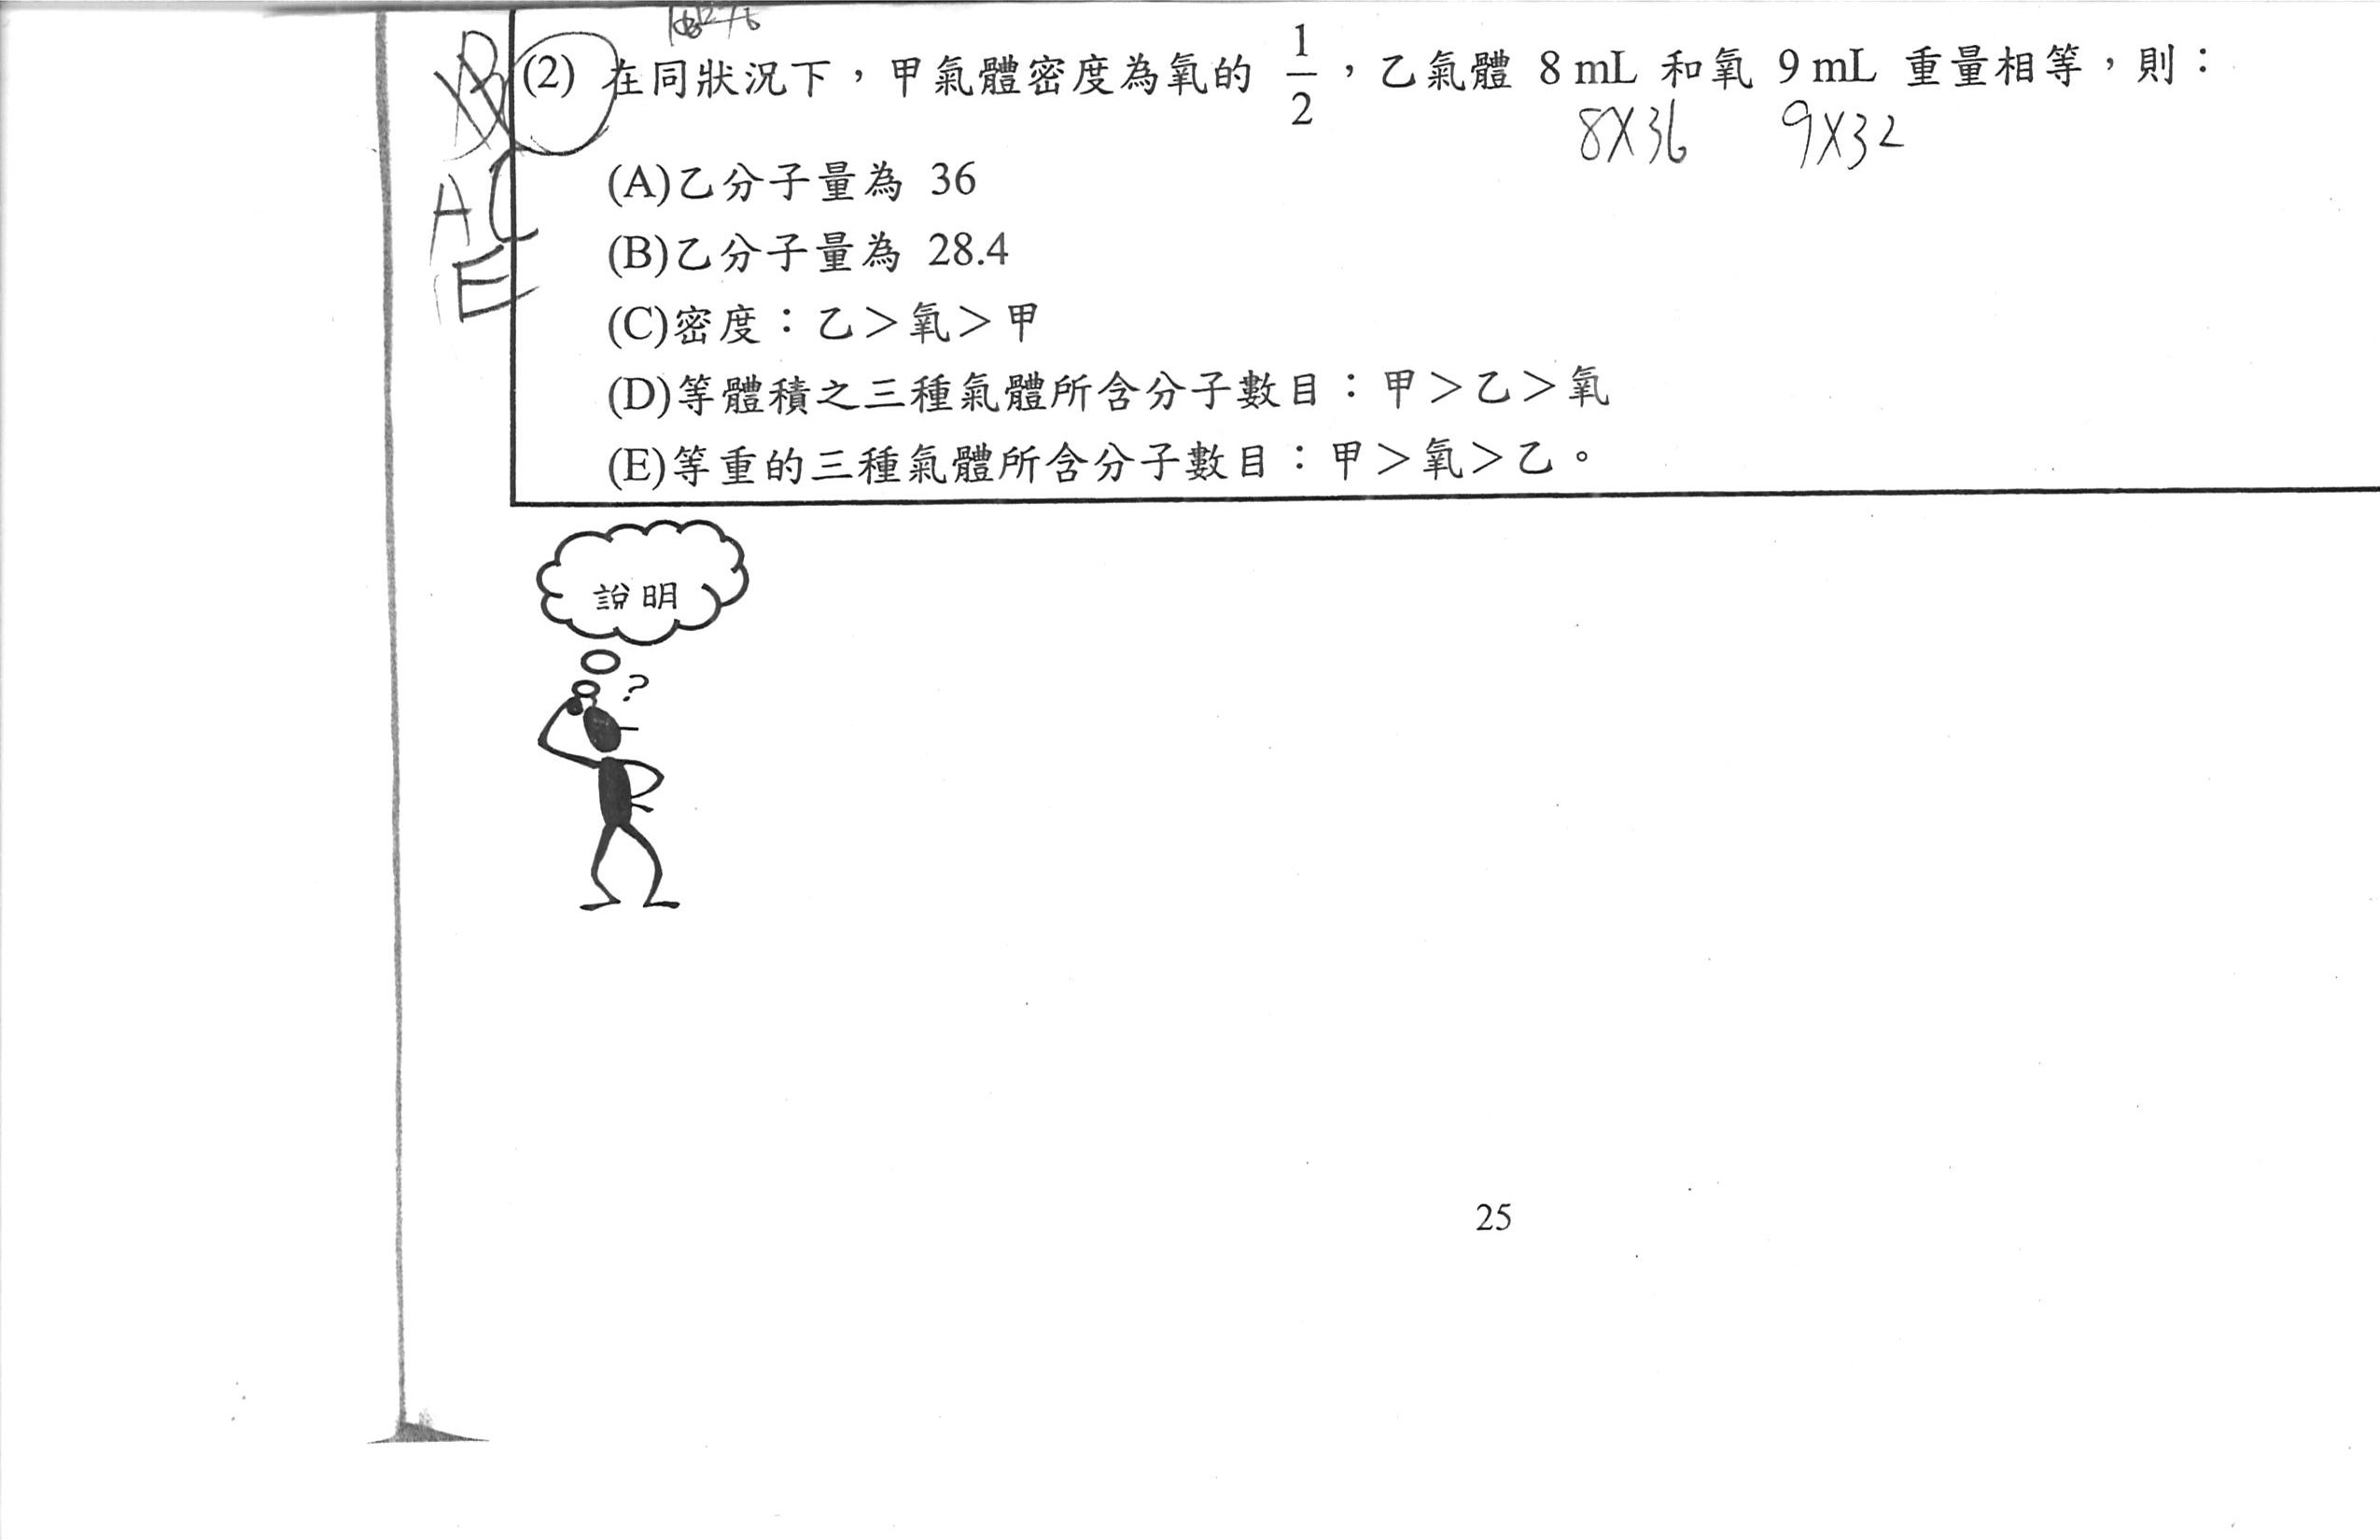 (2) 在同狀況下，甲氣體密度為氧的 1/2，乙氣體 8 mL 和氧 9 mL 重量相等，則：
8X36 9X32
(A)乙分子量為 36
(B)乙分子量為 28.4
(C)密度：乙＞氧＞甲
(D)等體積之三種氣體所含分子數目：甲＞乙＞氧
(E)等重的三種氣體所含分子數目：甲＞氧＞乙。
A C
E
說明
?
25